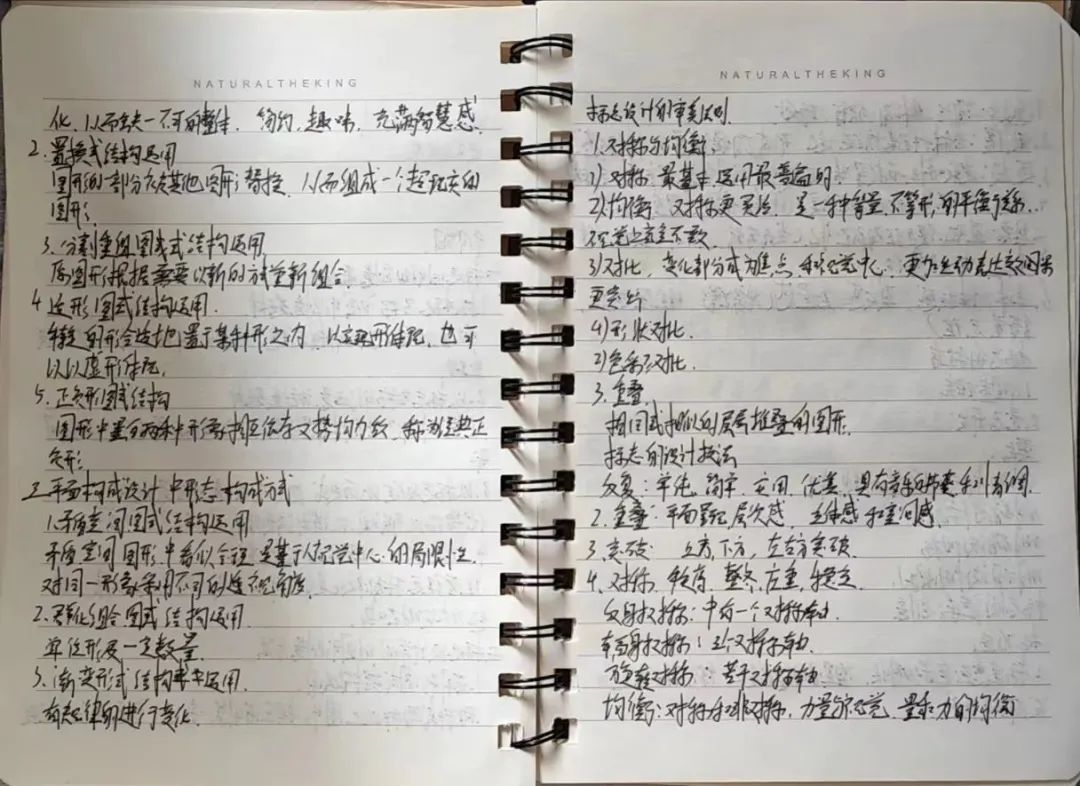 NATURALTHEKING
化,从而缺一不可的整体,简约,趣味,充满智慧感
2.置换式结构运用
图形的一部分被其他图形替换,从而组成一个超现实的
图形
3.分割重组图式结构运用
原图形根据需要以新的方式重新组合
4 适形图式结构运用.
将 的形 放置于某种形之内,以实现形 ,也可
以以虚形体现.
5.正负形图式结构
图形中 两种 形象相互依存又势均力敌,称为经典正
负形
三平面构成设计中形态构成方式
1.矛盾空间图式结构运用
矛盾空间图形中看似合理,是基于人视觉中心的局限性.
对同一形象采用不同的 角度
2.群化组合图式结构运用
单位形 一定数量
3.渐变形式结构 运用.
有规律的进行变化.
NATURALTHEKING
标志设计的审美法则.
1.对称与均衡
1)对称 最基本 运用最普遍的.
2)均衡 对称更灵活 是一种等量不等形的平衡关系.
视觉上
3)对比,变化部分成为焦点和视觉中心,更加生动表达
更突出
4)形状对比
2)色彩对比.
3.重叠
相同或相似的层层堆叠的图形
标志的设计技法
反复:单纯,简单,实用,优美,具有音乐的节奏和
2.重叠:平面 层次感,立体感和空间感
3.突破 上方,下方,左右方突破.
4.对称 秩序,整齐,庄重,稳定
反射对称:中有一个对称轴
对称: 对称轴
旋转对称 若干对称轴
均衡:对称和非对称,力量与视觉,量和力的均衡